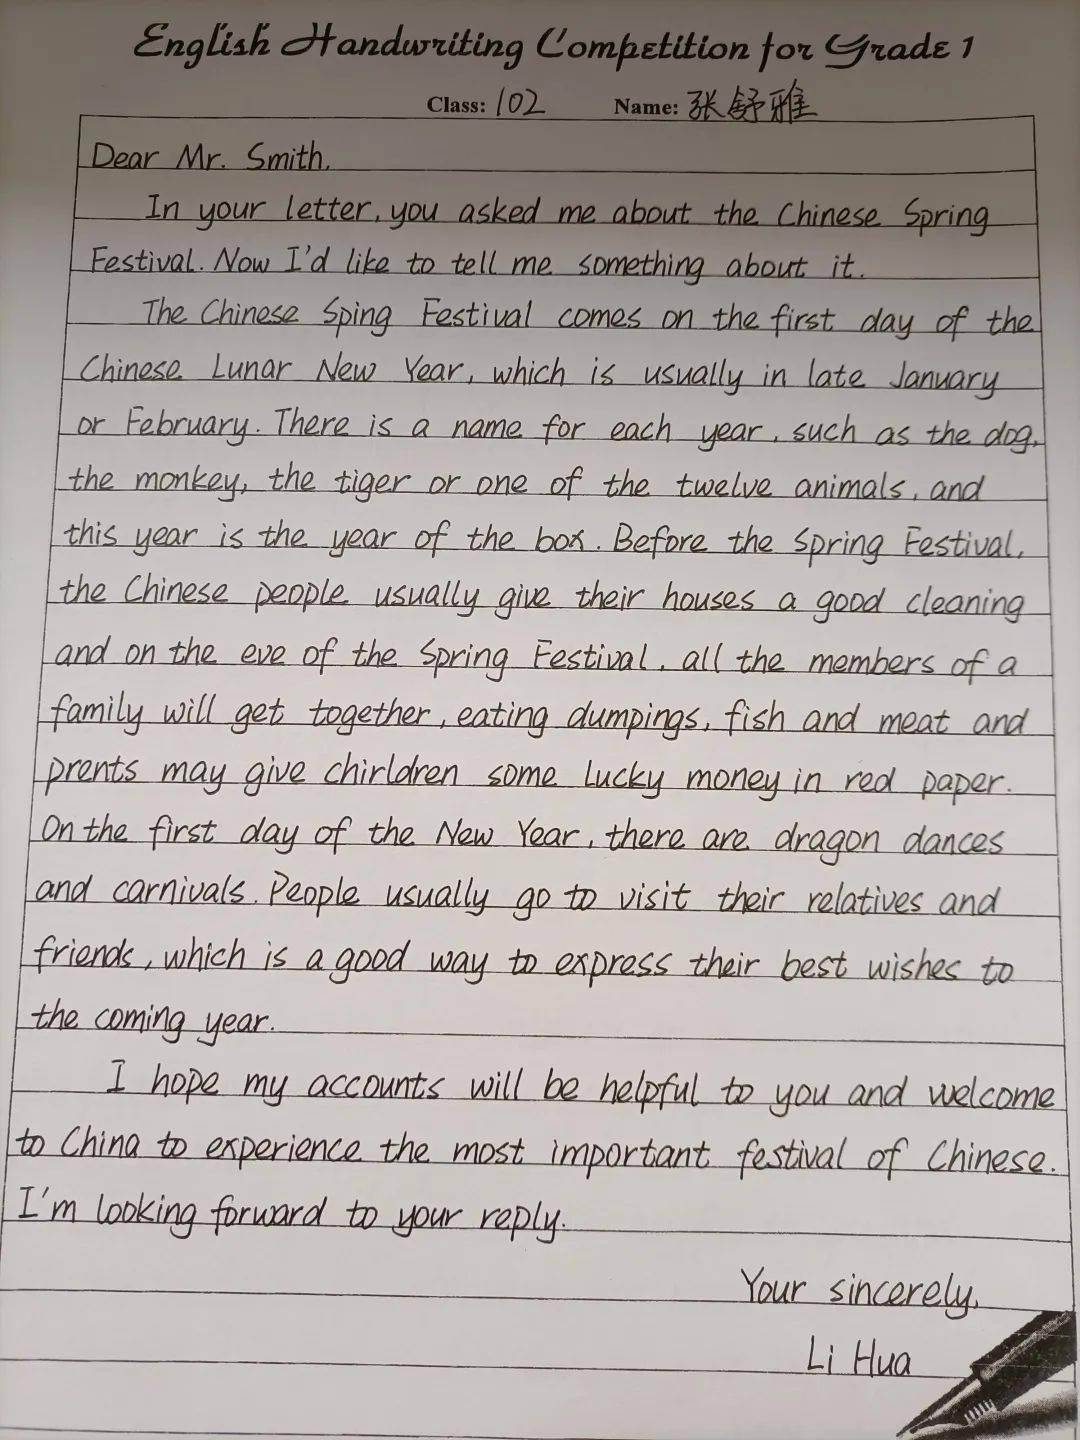 English Handwriting Competition for Grade 1
Class: 102 Name: 张舒雅
Dear Mr. Smith,
In your letter, you asked me about the Chinese Spring
Festival. Now I'd like to tell me something about it.
The Chinese Sping Festival comes on the first day of the
Chinese Lunar New Year, which is usually in late January
or February. There is a name for each year, such as the dog,
the monkey, the tiger or one of the twelve animals, and
this year is the year of the box. Before the Spring Festival,
the Chinese people usually give their houses a good cleaning
and on the eve of the Spring Festival, all the members of a
family will get together, eating dumpings, fish and meat and
prents may give chirldren some lucky money in red paper.
On the first day of the New Year, there are dragon dances
and carnivals. People usually go to visit their relatives and
friends, which is a good way to express their best wishes to
the coming year.
I hope my accounts will be helpful to you and welcome
to China to experience the most important festival of Chinese.
I'm looking forward to your reply.
Your sincerely,
Li Hua